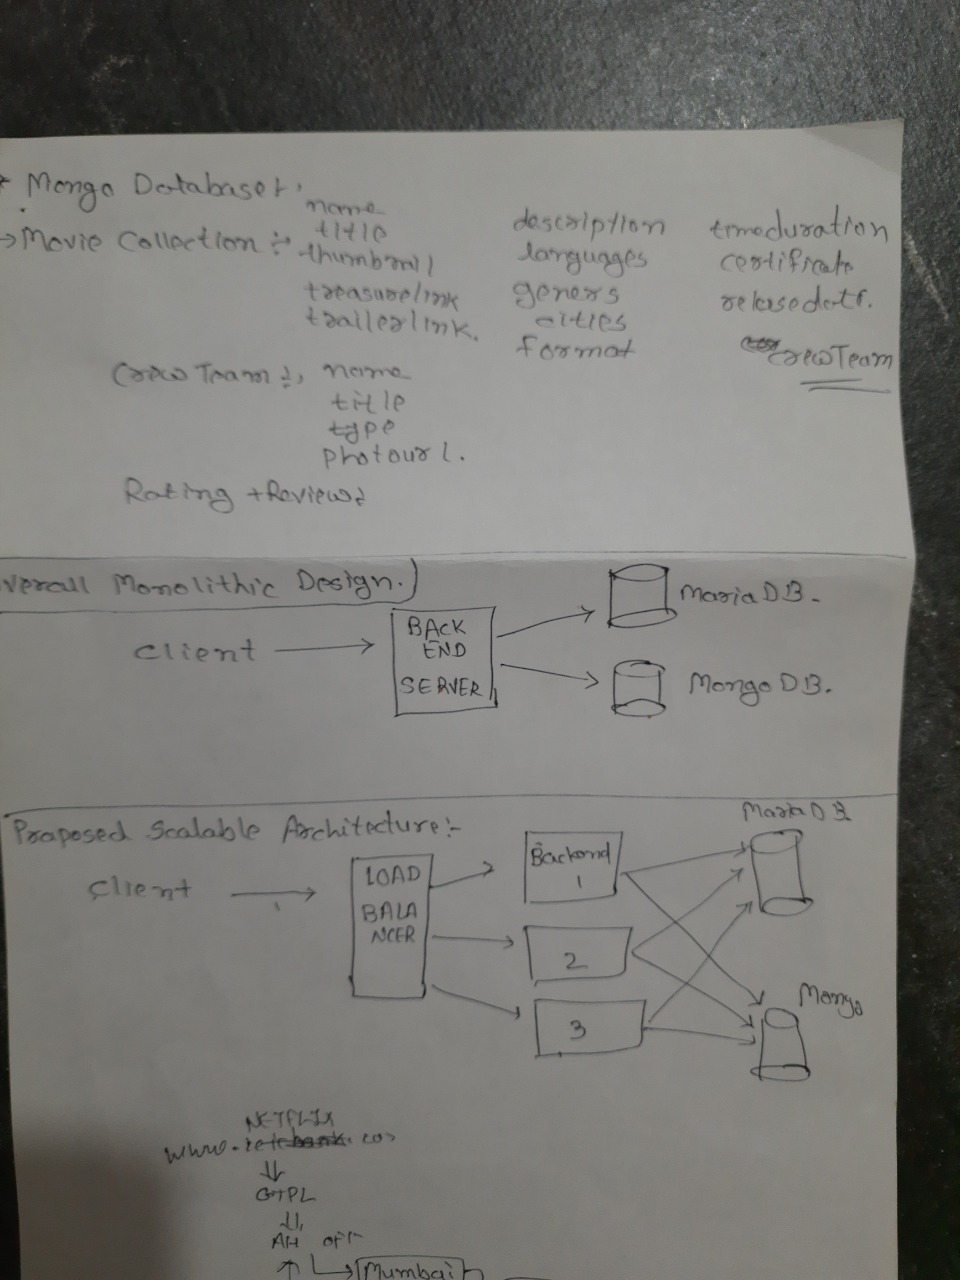 Mongo Database :-
→ Movie Collection :-
name
title
thumbnail
treasurelink
trailerlink.
description
languages
geners
cities
format
timeduration
certificate
releasedate.
crewTeam
Crew Team :-
name
title
type
photourl.
Rating + Review :
verall Monolithic Design.
Client
BACK
END
SERVER
Maria DB.
Mongo DB.
Proposed Scalable Architecture :-
Client
LOAD
BALA
NCER
Backend
1
2
3
Maria DB
Mongo
NETFLIX
www.
GTPL
AH
Mumbai